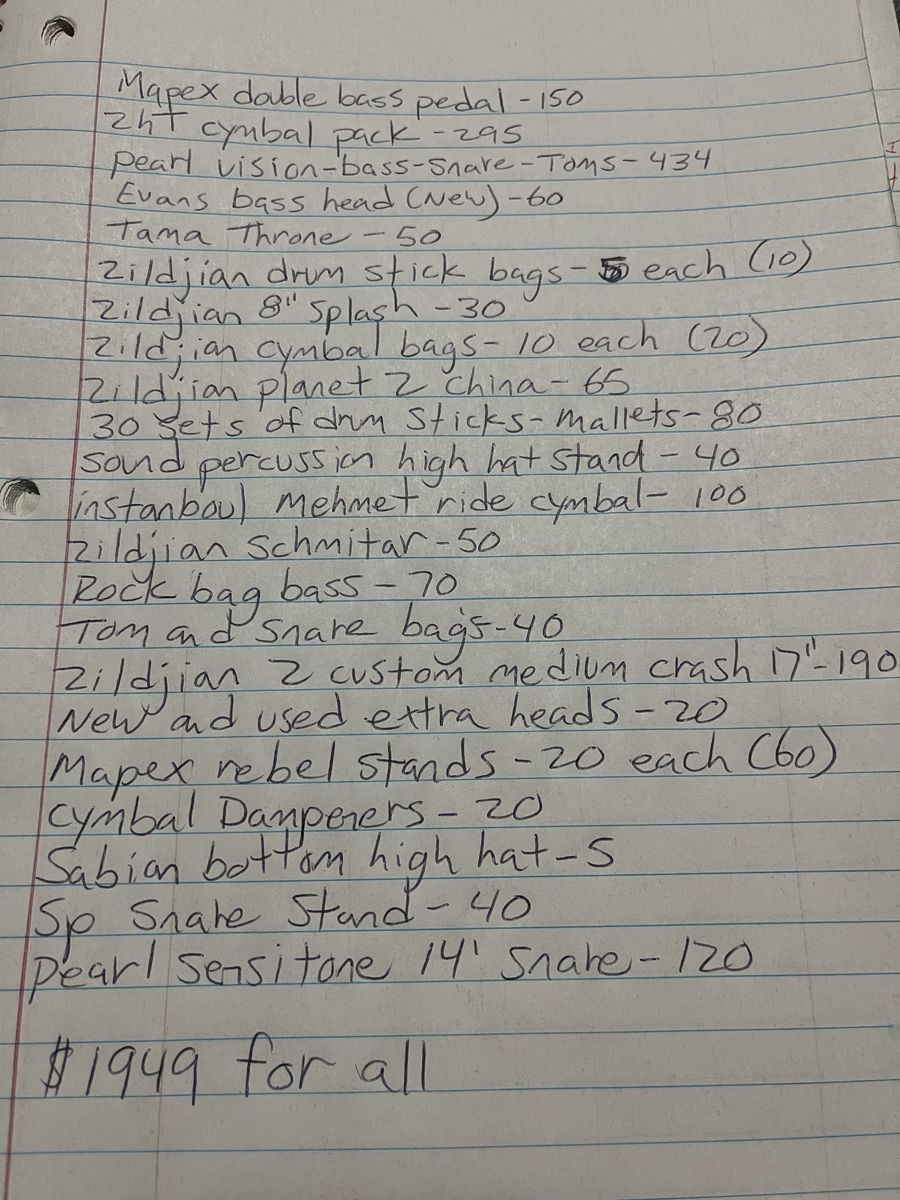 Mapex double bass pedal - 150
Zht cymbal pack - 295
pearl vision-bass-snare-Toms-434
Evans bass head (New) -60
Tama Throne - 50
Zildjian drum stick bags- 5 each (10)
Zildjian 8" Splash -30
Zildjian cymbal bags- 10 each (20)
Zildjian planet Z china- 65
30 sets of drum sticks-mallets-80
sound percussion high hat stand - 40
instanboul mehmet ride cymbal- 100
zildjian Schmitar-50
Rock bag bass - 70
Tom and snare bags-40
Zildjian Z custom medium crash 17"-190
New and used extra heads -20
Mapex rebel stands -20 each (60)
cymbal Dampeners - 20
Sabian bottom high hat -5
Sp Snare Stand- 40
pearl Sensitone 14' snare-120
$1949 for all